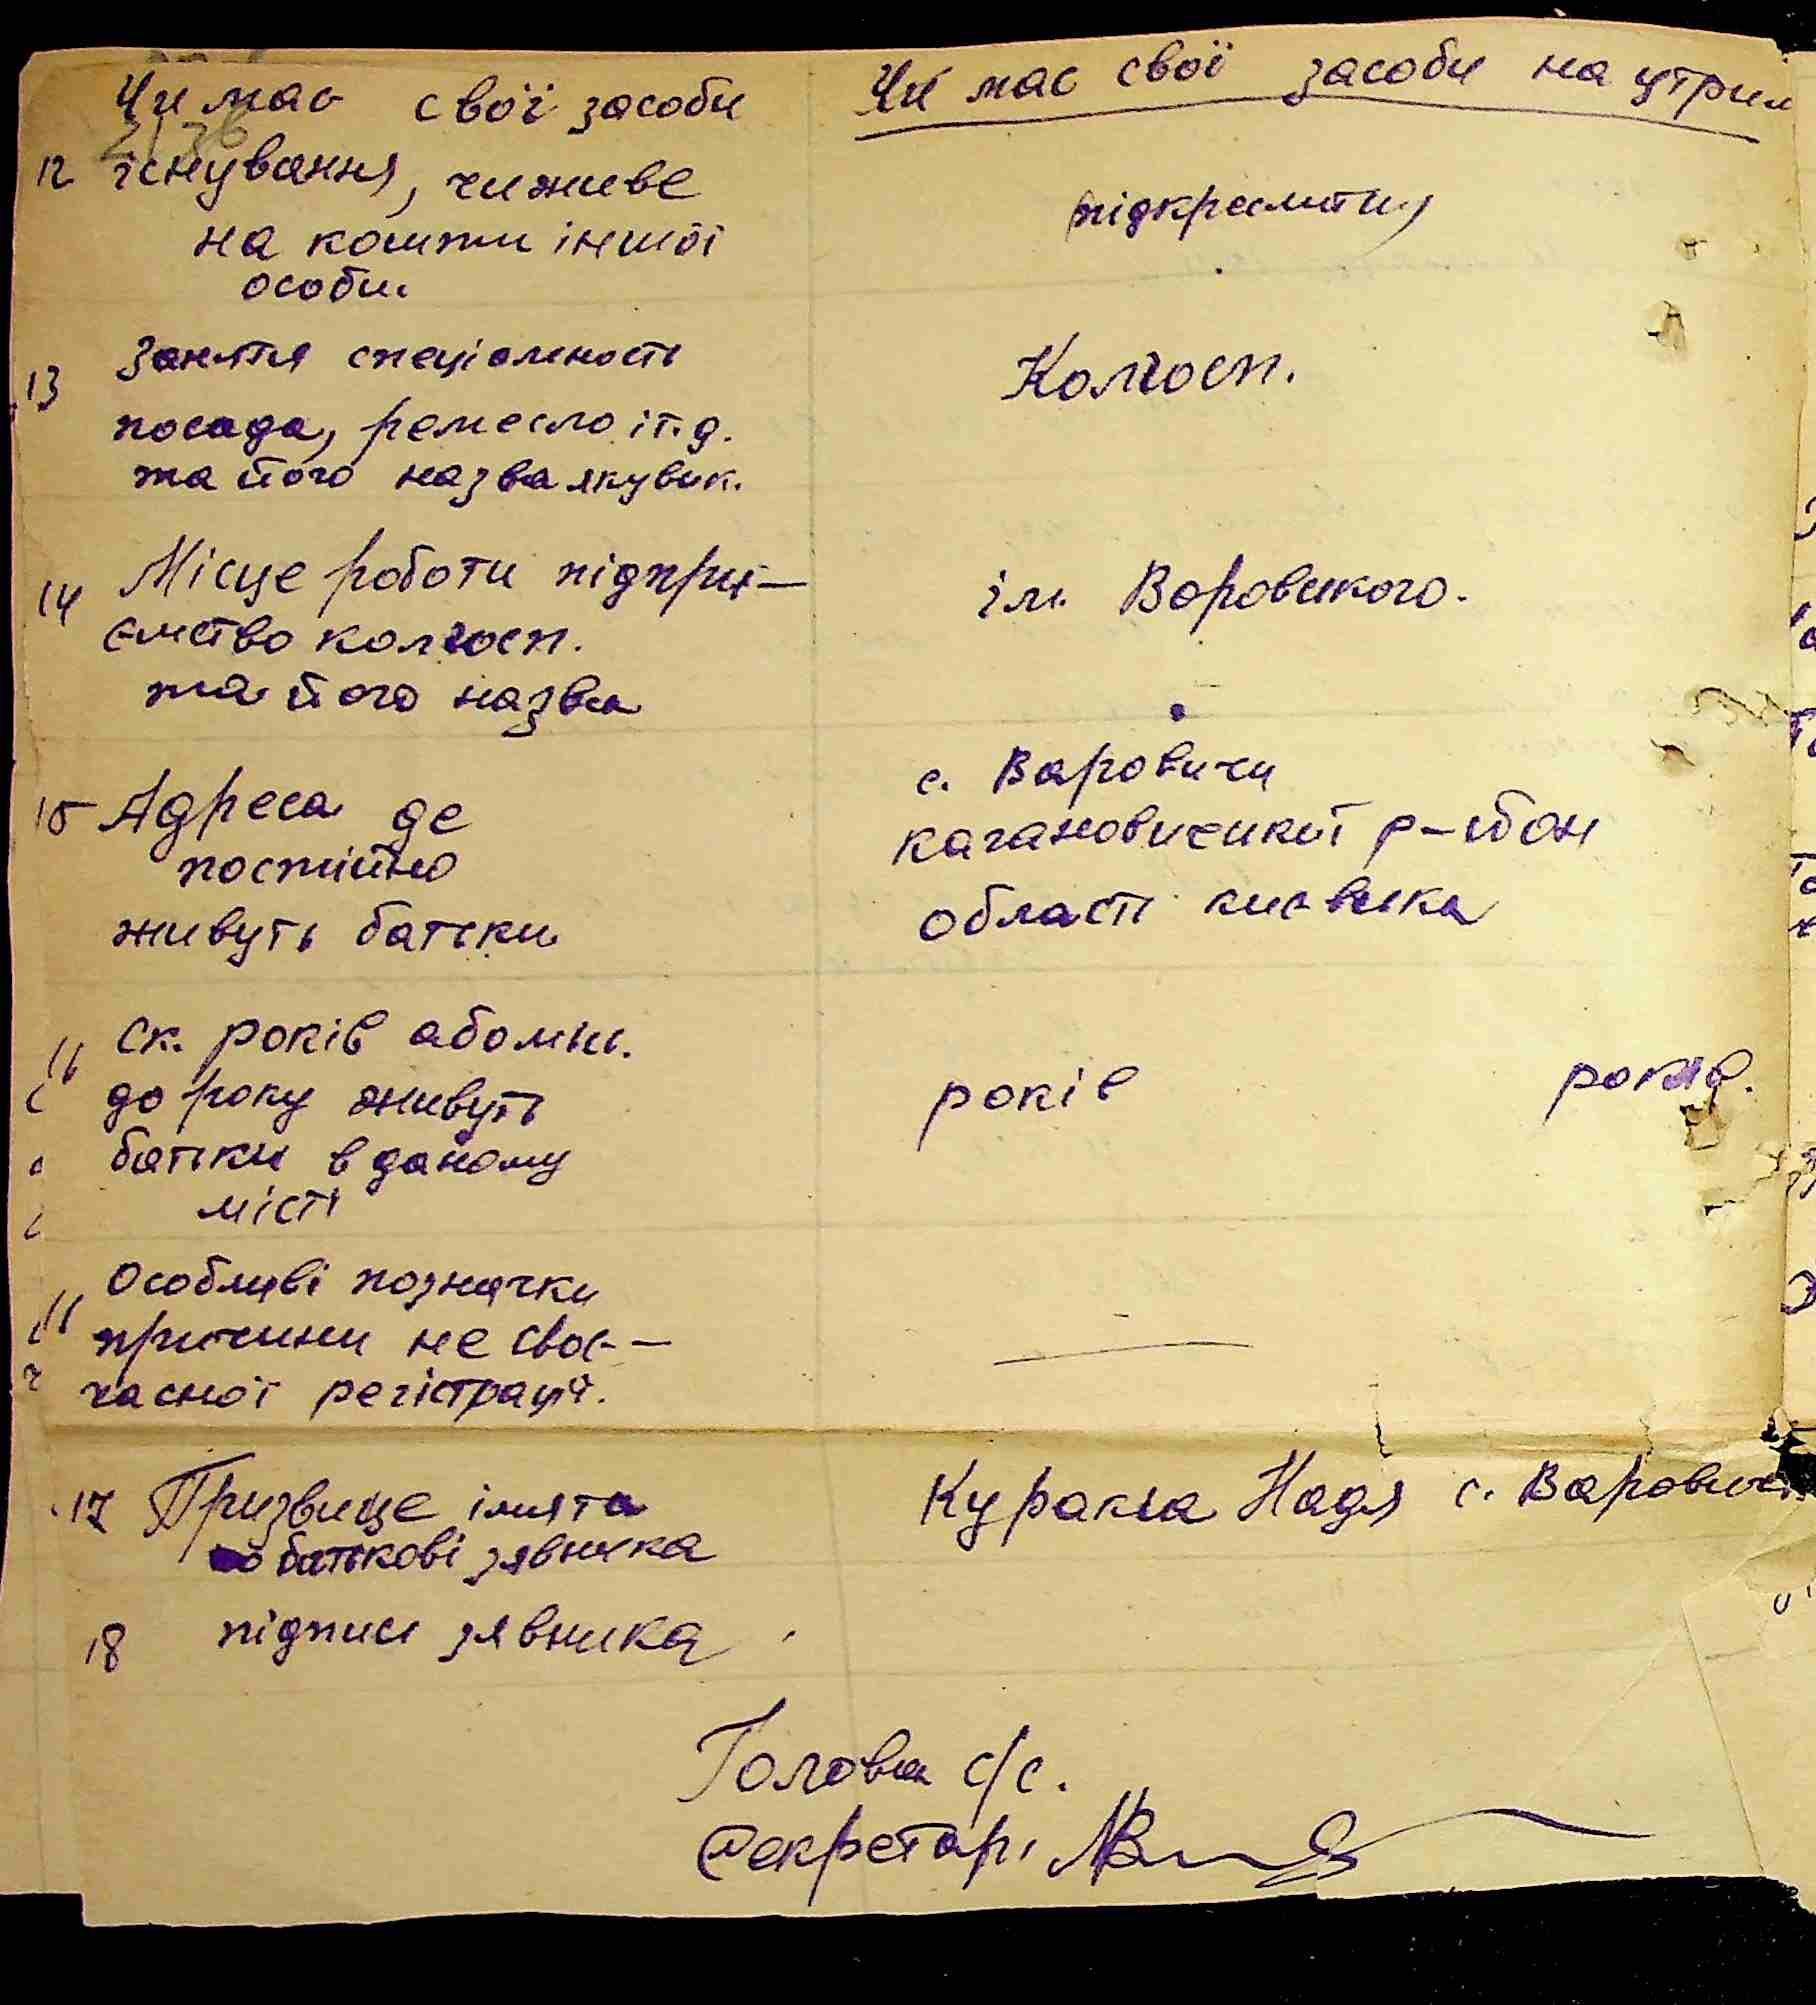 Чи має свої засоби
Чи має свої засоби на утрим
12 існування, чи живе
на кошти іншої
особи.
(підкреслити)
13 Заняття спеціальність
посада, ремесло і т.д.
та його назва яку вик.
Колгосп.
14 Місце роботи підпри-
ємство колгосп.
та його назва
ім. Воровського.
15 Адреса де
постійно
живуть батьки
с. Варовичи
кагановичський р-йон
області київська
Ск. років або міс.
до року живуть
батьки в даному
місті
років років.
Особливі позначки
причини не своє-
часної регістрації.
—
17 Призвище імя та
по батькові зявника
Куракса Надя с. Варович
18 підпись зявника
Голова с/с.
Секретарь